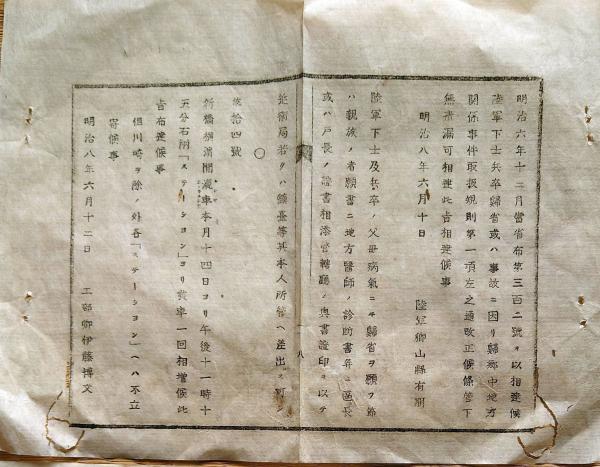 明治六年十二月當省布第三百二號ヲ以相達候
陸軍下士兵卒歸省或ハ事故ニ因リ歸郷中地方
關係事件取扱規則第一項左之通改正候條管下
無遺漏可相達此旨相達候事
明治八年六月十日
陸軍卿山縣有朋
陸軍下士及兵卒ノ父母病氣ニテ歸省ヲ願フ節
ハ親族ノ者願書ニ地方醫師ノ診斷書幷ニ區長
或ハ戸長ノ證書相添管轄廳ノ奥書證印ヲ以テ
八
近衛局若クハ鎭臺等其本人所管ヘ差出ス可シ
○
第拾四號
新橋横濱間滊車本月十四日ヨリ午後十一時十
五分右両「ステーション」ヨリ貨車一回相增候此
旨布達候事
但川崎ヲ除ノ外各「ステーション」ヘハ不立
寄候事
明治八年六月十二日
工部卿伊藤博文